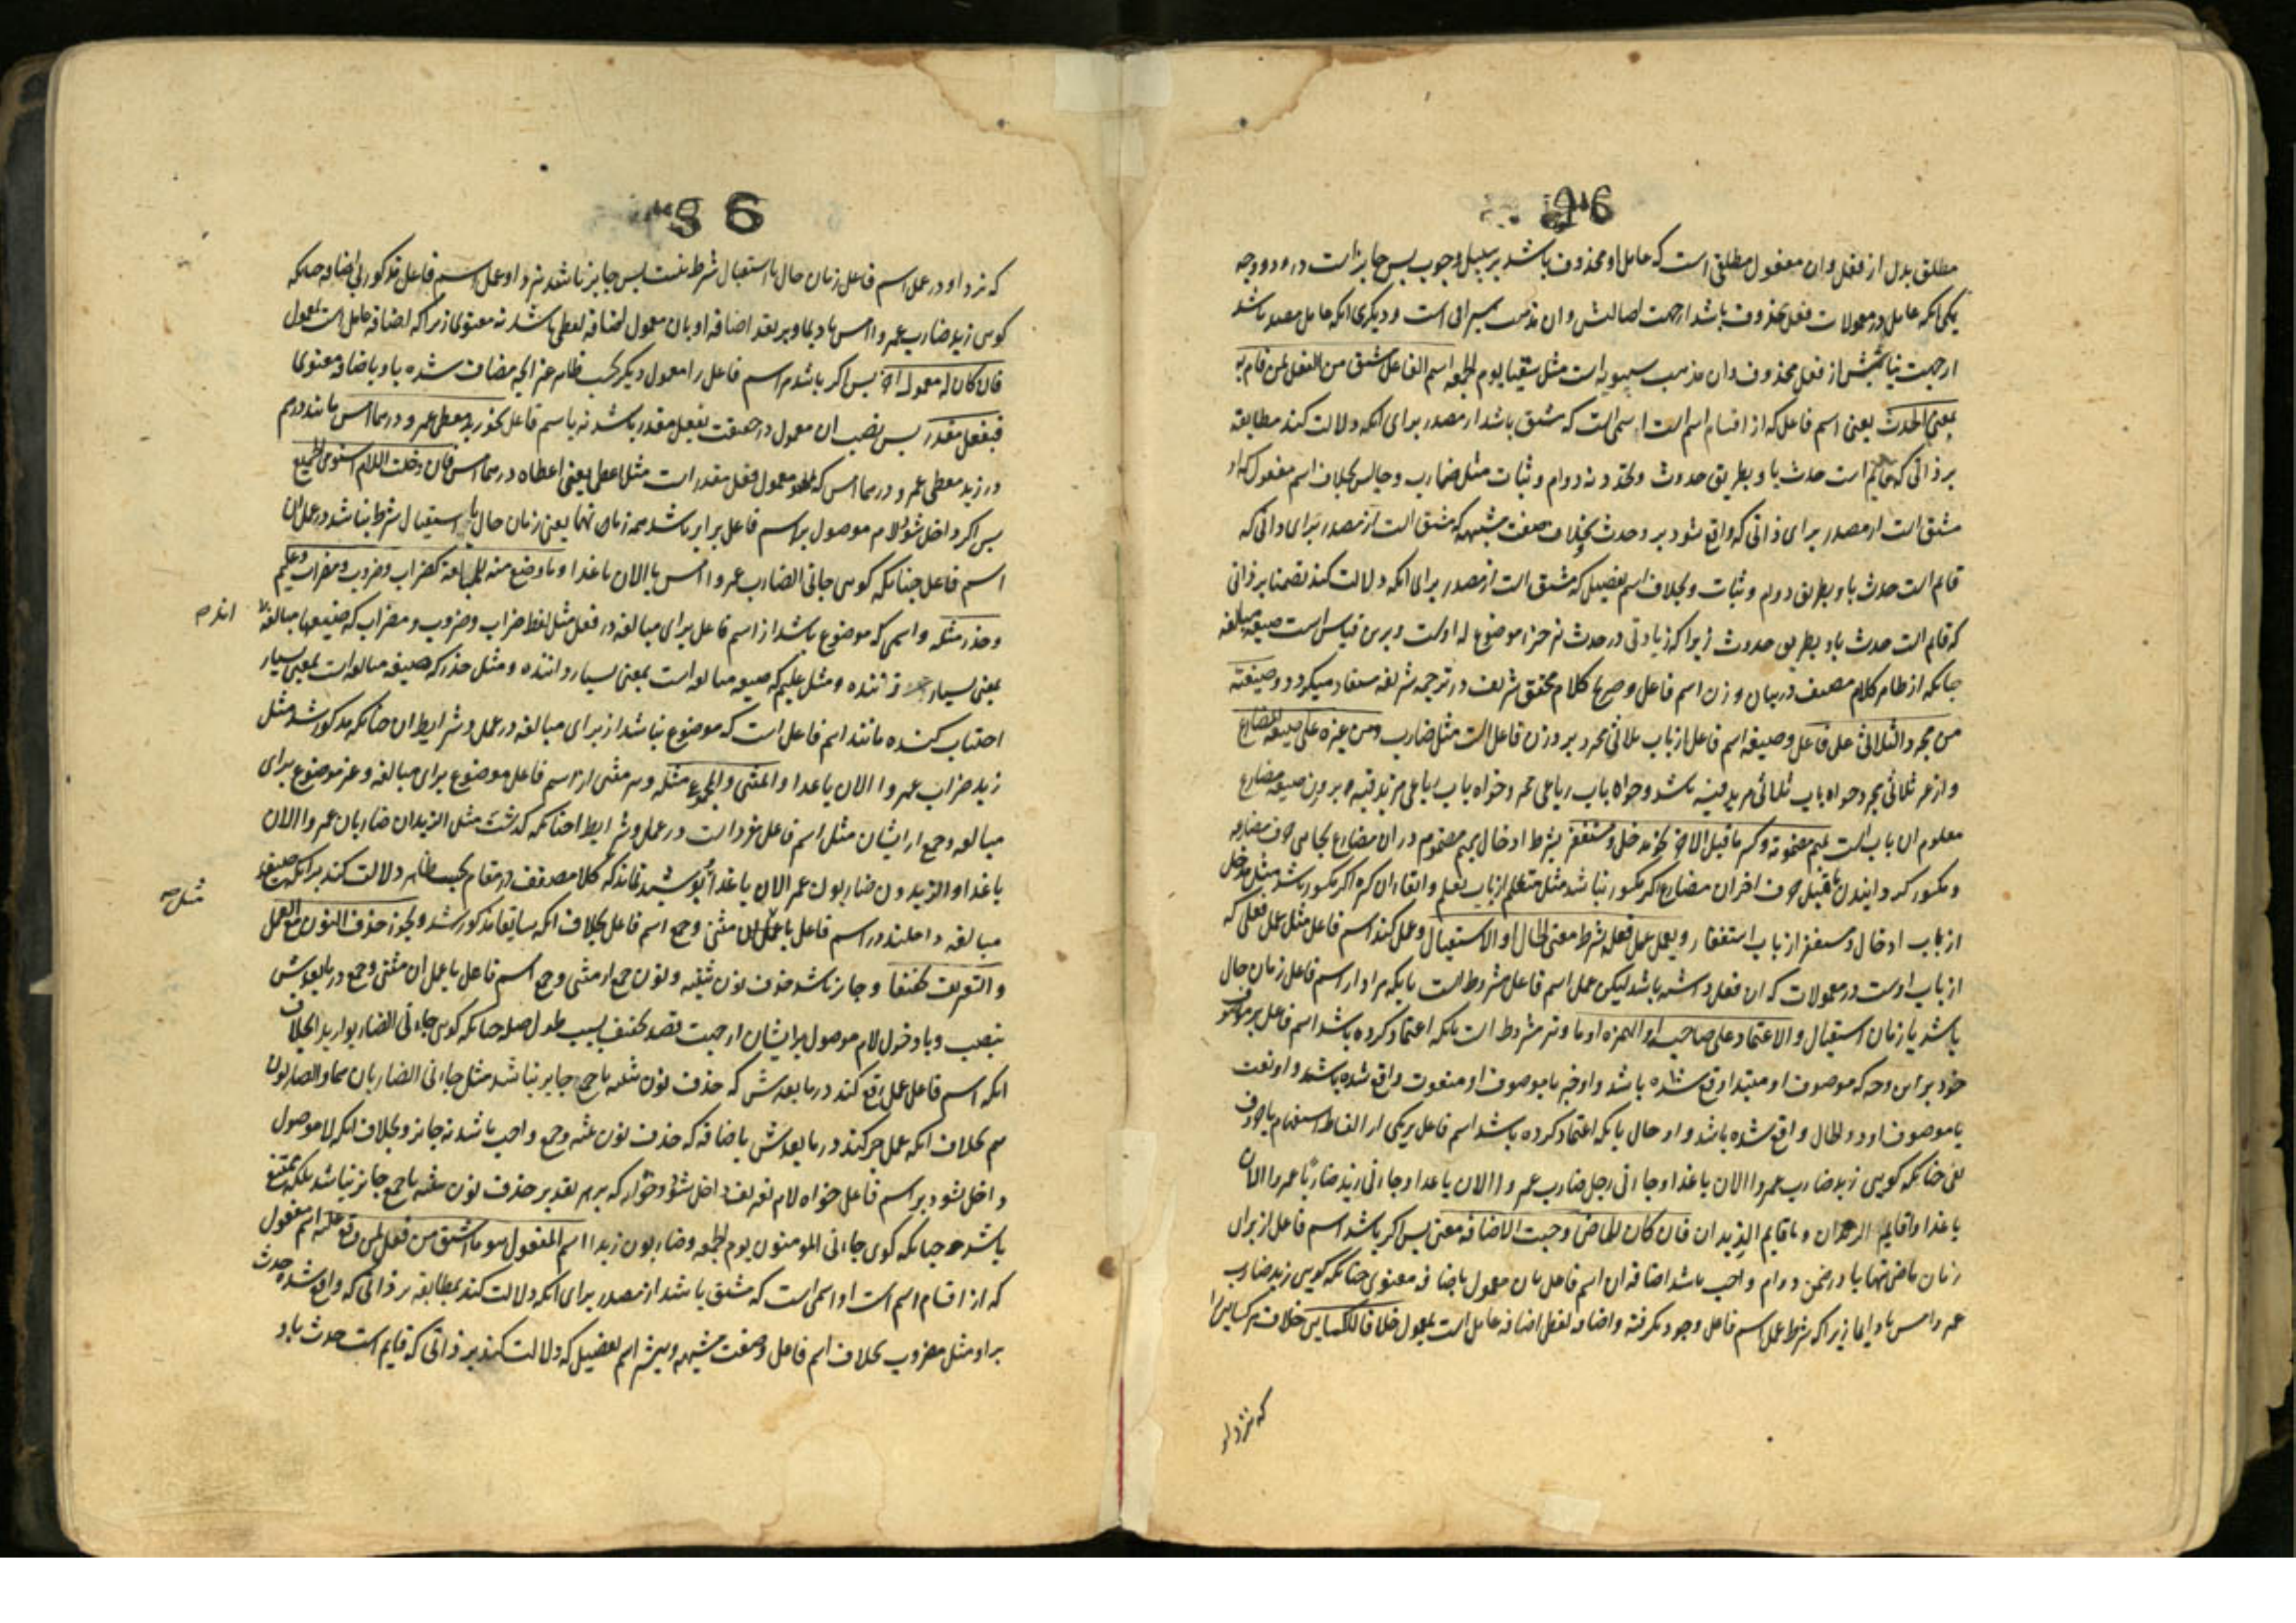 مطلق بدل از فعل و ان مفعول مطلقی است که عامل او محذوف باشد بر سبیل وجوب پس جایز است درو دو وجه
یکی انکه عامل در معمولات فعل محذوف باشد ارجهت اصالتش و ان مذهب سیرافی است و دیکری انکه عامل مصدر باشد
ارجهت نیابتش از فعل محذوف و ان مذهب سیبویه است مثل سقیا یوم الجمعه اسم الفاعل مشتق من الفعل لمن قام به
بمعنی الحدث یعنی اسم فاعل که از اقسام اسم است اسمی است که مشتق باشد از مصدر برای انکه دلالت کند مطابقه
بر ذاتی که قایم است حدث باو بطریق حدوث و تجدد نه دوام و ثبات مثل ضارب و جالس بخلاف اسم مفعول که او
مشتق است از مصدر برای ذاتی که واقع شود برو حدث و بخلاف صفت مشبهه که مشتق است از مصدر برای ذاتی که
قایم است حدث باو بطریق دوام و ثبات و بخلاف اسم تفضیل که مشتق است از مصدر برای انکه دلالت کند تضمنا بر ذاتی
که قایم است حدث باو بطریق حدوث زیرا که زیادتی در حدث نیز جزء موضوع له اوست و برین قیاس است صیغه مبالغه
چنانکه از ظاهر کلام مصنف در بیان وزن اسم فاعل و صریح کلام محقق شریف در ترجمه شریفه مستفاد میکردد و صیغته
من مجرد الثلاثی علی فاعل و صیغه اسم فاعل از باب ثلاثی مجرد بر وزن فاعل است مثل ضارب و من غیره علی صیغه المضارع
و از غیر ثلاثی مجرد خواه باب ثلاثی مزید فیه باشد و خواه باب رباعی مجرد و خواه باب رباعی مزید فیه بر وزن صیغه مضارع
معلوم ان باب است بمیم مضمومة و کسر ما قبل الاخر نحو مدخل و مستغفر بشرط ادخال میم مضموم در ان مضارع بجای حرف مضارعه
و مکسور کردانیدن ما قبل حرف اخر ان مضارع اکر مکسور نباشد مثل متعلم از باب تفعل و ابقاء ان کسره اکر مکسور باشد مثل مدخل
از باب ادخال و مستغفر از باب استغفار و یعمل عمل فعله بشرط معنی الحال او الاستقبال و عمل کند اسم فاعل مثل عمل فعلی که
از باب اوست در معمولات که ان فعل داشته باشد لیکن عمل اسم فاعل مشروط است بانکه مراد از اسم فاعل زمان حال
باشد یا زمان استقبال و الاعتماد علی صاحبه او الهمزه او ما و نیز مشروط است بانکه اعتماد کرده باشد اسم فاعل بر موصوف
خود بر این وجه که موصوف او مبتدا واقع شده باشد و او خبر یا موصوف او منعوت واقع شده باشد و او نعت
یا موصوف او ذوالحال واقع شده باشد و او حال یا بانکه اعتماد کرده باشد اسم فاعل بر یکی از الفاظ استفهام یا حرف
نفی چنانکه کویی زید ضارب عمروا الان یا غدا و جاءنی رجل ضارب عمروا الان یا غدا و جاءنی زید ضاربا عمروا الان
یا غدا و اقایم الزیدان و ما قایم الزیدان فان کان للماضی وجبت الاضافه معنی پس اکر باشد اسم فاعل از برای
زمان ماضی تنها یا در ضمن دوام واجب باشد اضافه ان اسم فاعل بان معمول باضافه معنوی چنانکه کویی زید ضارب
عمرو امس یا دایما زیرا که شرط عمل اسم فاعل وجود نکرفته و اضافه لفظی اضافه عامل است بمعمول خلافا للکسایی خلاف مر کسایی را
که نزد او
که نزد او در عمل اسم فاعل زمان حال یا استقبال شرط نیست پس جایز باشد نزد او عمل اسم فاعل مذکور بی اضافه چنانکه
کویی زید ضارب عمروا امس یا دایما و بر تقدیر اضافه او بان معمول اضافه لفظی باشد نه معنوی زیرا که اضافه عامل است بمعمول
فان کان له معمول اخر پس اکر باشد مر اسم فاعل را معمول دیکر بحسب ظاهر غیر انچه مضاف شده باو باضافه معنوی
فبفعل مقدر پس نصب ان معمول در حقیقت بفعل مقدر باشد نه باسم فاعل نحو زید معطی عمرو درهما امس مانند درهم
در زید معطی عمرو درهما امس که معمول فعل مقدر است مثل اعطی یعنی اعطاه درهما امس فان دخلت اللام استوی الجمیع
پس اکر داخل شود لام موصول بر اسم فاعل برابر باشد همه زمان تنها یعنی زمان حال یا استقبال شرط نباشد در عمل ان
اسم فاعل چنانکه کویی جاءنی الضارب عمروا امس یا الان یا غدا و ما وضع منه للمبالغة کضراب و ضروب و مضراب و علیم
و حذر مثله و اسمی که موضوع باشد از اسم فاعل برای مبالغه در فعل مثل لفظ ضراب و ضروب و مضراب که صیغهای مبالغه
اندصه
بمعنی بسیار زننده و مثل علیم که صیغه مبالغه است بمعنی بسیار داننده و مثل حذر که صیغه مبالغه است بمعنی بسیار
اجتناب کننده مانند اسم فاعل است که موضوع نباشد از برای مبالغه در عمل و شرایط ان چنانکه مذکور شد مثل
زید ضراب عمروا الان یا غدا و المثنی و المجموع مثله و هر مثنی از اسم فاعل موضوع برای مبالغه و غیر موضوع برای
مبالغه و جمع از ایشان مثل اسم فاعل مفرد است در عمل و شرایط چنانکه کذشت مثل الزیدان ضاربان عمروا الان
یا غدا و الزیدون ضاربون عمروا الان یا غدا پوشیده نماند که کلام مصنف در مقام بحسب ظاهر دلالت کند بر انکه صیغ
مثل صه
مبالغه داخلند در اسم فاعل با مثنی و جمع اسم فاعل بخلاف انکه سابقا مذکور شد و یجوز حذف النون مع العمل
و التعریف تخفیفا و جایز باشد حذف نون تثنیه و نون جمع از مثنی و جمع اسم فاعل با عمل ان مثنی و جمع در مابعدش
بنصب و با دخول لام موصول بر ایشان ارجهت قصد تخفیف بسبب طول صله چنانکه کویی جاءنی الضاربوا زیدا بخلاف
انکه اسم فاعل عمل رفع کند در مابعدش که حذف نون تثنیه یا جمع جایز نباشد مثل جاءنی الضاربان هما و الضاربون
هم بخلاف انکه عمل جر کند در مابعدش باضافه که حذف نون تثنیه و جمع واجب باشد نه جایز و بخلاف انکه لام موصول
داخل نشود بر اسم فاعل خواه لام تعریف داخل شود و خواه نه که بر هر تقدیر حذف نون تثنیه یا جمع جایز نباشد بلکه ممتنع
باشد چنانکه کوی جاءنی المومنون یوم الجمعه و ضاربون زیدا اسم المفعول هو ما اشتق من فعل لمن وقع علیه اسم مفعول
که از اقسام اسم است او اسمی است که مشتق باشد از مصدر برای انکه دلالت کند بمطابقه بر ذاتی که واقع شده حدث
بر او مثل مضروب بخلاف اسم فاعل و صفت مشبهه و بیشتر اسم تفضیل که دلالت کند بر ذاتی که قایم است حدث باو